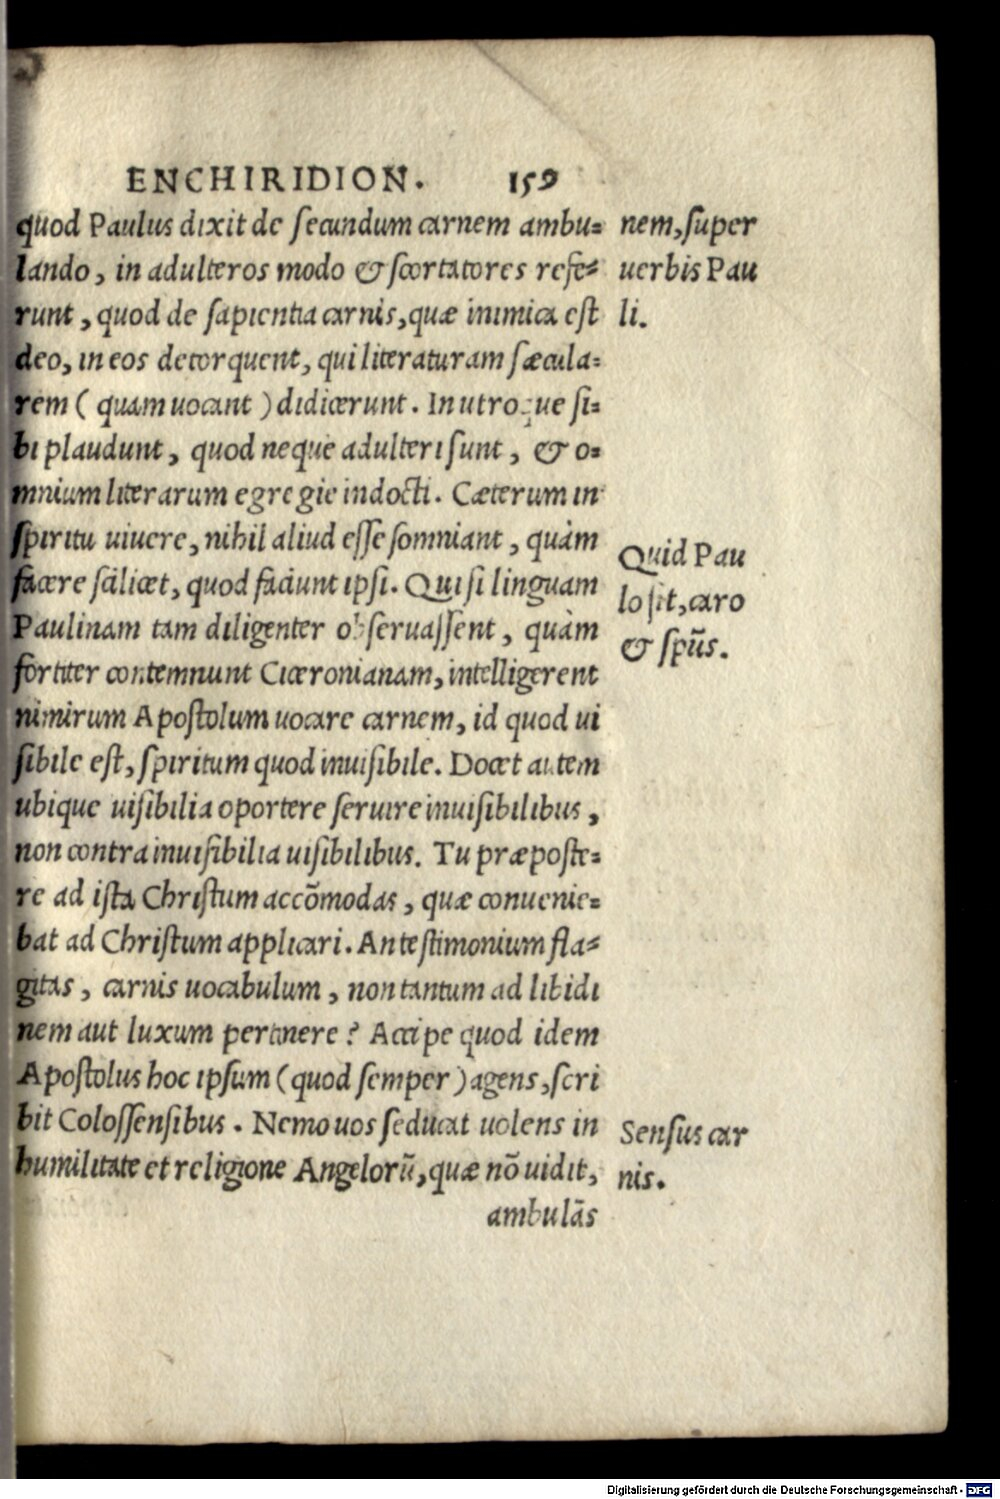 ENCHIRIDION. 159
quod Paulus dixit de secundum carnem ambu=
lando, in adulteros modo & scortatores refe=
runt, quod de sapientia carnis, quæ inimica est
deo, in eos detorquent, qui literaturam sæcula=
rem ( quam uocant ) didicerunt. In utroque si=
bi plaudunt, quod neque adulteri sunt, & o=
mnium literarum egregie indocti. Cæterum in
spiritu uiuere, nihil aliud esse somniant, quàm
facere scilicet, quod faciunt ipsi. Qui si linguam
Paulinam tam diligenter obseruassent, quàm
fortiter contemnunt Ciceronianam, intelligerent
nimirum Apostolum uocare carnem, id quod ui
sibile est, spiritum quod inuisibile. Docet autem
ubique uisibilia oportere seruire inuisibilibus,
non contra inuisibilia uisibilibus. Tu præposte=
re ad ista Christum accõmodas, quæ conuenie=
bat ad Christum applicari. An testimonium fla=
gitas, carnis uocabulum, non tantum ad libidi
nem aut luxum pertinere? Accipe quod idem
Apostolus hoc ipsum (quod semper) agens, scri
bit Colossensibus. Nemo uos seducat uolens in
humilitate et religione Angelorũ, quæ nõ uidit,
ambulãs
nem, super
uerbis Pau
li.
Quid Pau
lo sit, caro
& spũs.
Sensus car
nis.
Digitalisierung gefördert durch die Deutsche Forschungsgemeinschaft - DFG